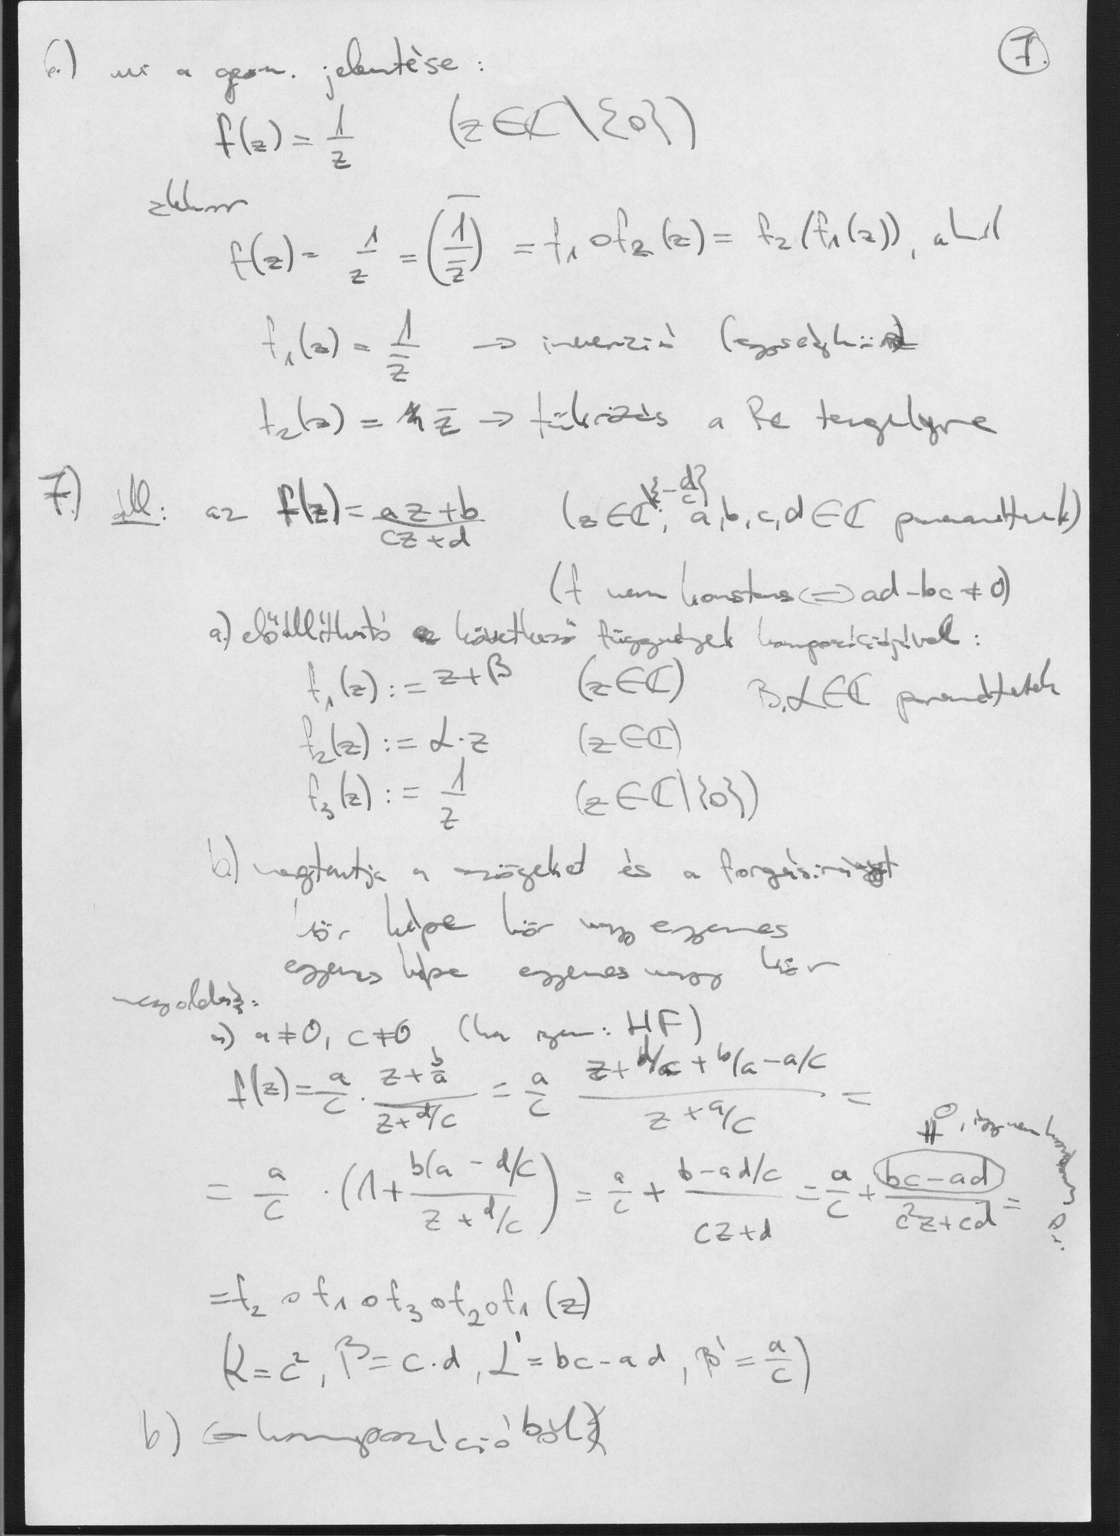 7.
6.) mi a geom. jelentése :
f(z) = 1/z (z∈ℂ\{0})
ekkor
f(z) = 1/z = \overline{(1/z̄)} = f₁∘f₂(z) = f₂(f₁(z)), ahol
f₁(z) = 1/z̄ → inverzió (egységkörre)
f₂(z) = z̄ → tükrözés a Re tengelyre
7.) áll: az f(z) = (az+b)/(cz+d) (z∈ℂ\{-d/c}; a,b,c,d∈ℂ paraméterek)
(f nem konstans ⇔ ad-bc≠0)
a.) előállítható a következő függvények kompozíciójával :
f₁(z) := z+β (z∈ℂ) β,α∈ℂ paraméterek
f₂(z) := α·z (z∈ℂ)
f₃(z) := 1/z (z∈ℂ\{0})
b.) megtartja a szögeket és a forgásirányt
kör képe kör vagy egyenes
egyenes képe egyenes vagy kör
megoldás:
a) a≠0, c≠0 (ha igen: HF)
f(z) = a/c · (z+b/a)/(z+d/c) = a/c (z+d/c+b/a-a/c)/(z+a/c) =
= a/c · (1+(b/a - d/c)/(z+d/c)) = a/c + (b-ad/c)/(cz+d) = a/c + (bc-ad)/(c²z+cd) =
≠0, így nem konstans
= f₂∘f₁∘f₃∘f₂∘f₁(z)
(α=c², β=c·d, α'=bc-ad, β'=a/c)
b) ⇐ kompozícióból